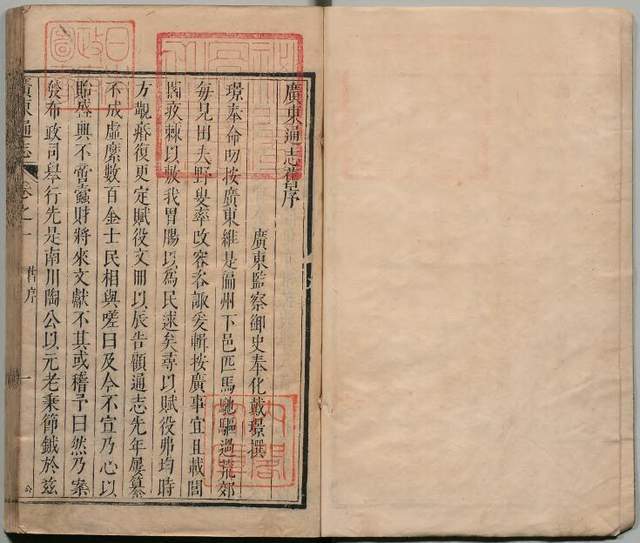 廣東通志舊序
廣東監察御史奉化戴璟撰
璟奉命叨按廣東維是偏州下邑匹馬馳驅過荒郊
每見田夫野叟率改容咨諏爰輯按廣事宜且載閭
閻疾棘以敷我胃腸以為民逑矣尋以賦役弗均時
方觀瘠復更定賦役文冊以辰告顧通志先年屢纂
不成虛縻數百金士民相與嗟曰及今不宜乃心以
貽盛典不啻蠹財將來文獻不其或稽予曰然乃案
發布政司舉行先是南川陶公以元老秉節鉞於茲
廣東通志
卷之一
舊序
一